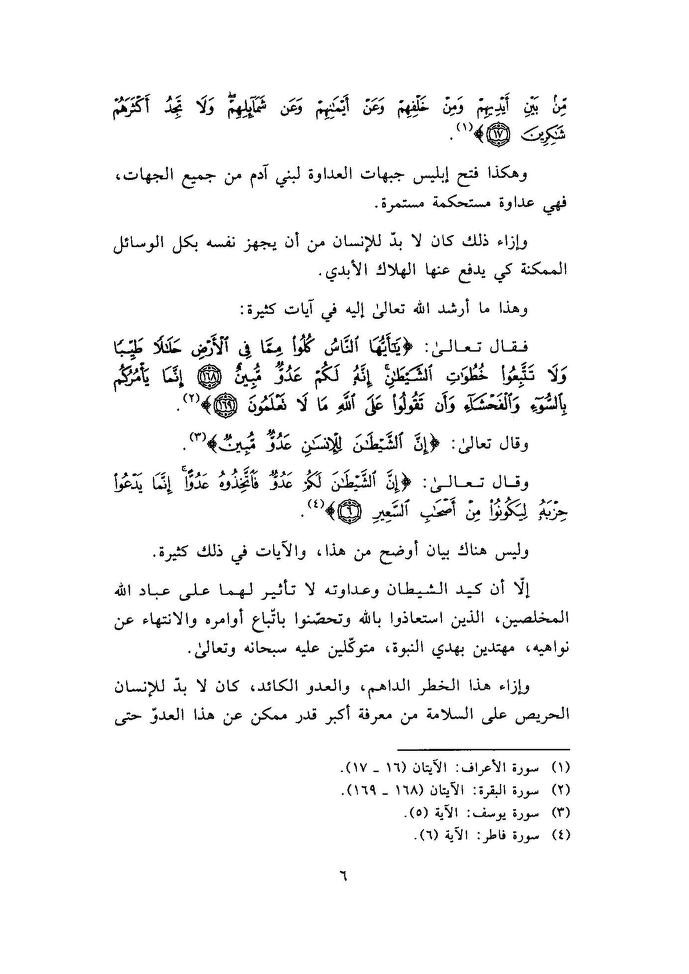 مِّنۢ بَيْنِ أَيْدِيهِمْ وَمِنْ خَلْفِهِمْ وَعَنْ أَيْمَٰنِهِمْ وَعَن شَمَآئِلِهِمْ ۖ وَلَا تَجِدُ أَكْثَرَهُمْ
شَٰكِرِينَ ١٧﴾(١).
وهكذا فتح إبليس جبهات العداوة لبني آدم من جميع الجهات،
فهي عداوة مستحكمة مستمرة.
وإزاء ذلك كان لا بدّ للإنسان من أن يجهز نفسه بكل الوسائل
الممكنة كي يدفع عنها الهلاك الأبدي.
وهذا ما أرشد الله تعالىٰ إليه في آيات كثيرة:
فـقـال تـعـالـىٰ: ﴿يَٰٓأَيُّهَا ٱلنَّاسُ كُلُوا۟ مِمَّا فِى ٱلْأَرْضِ حَلَٰلًا طَيِّبًا
وَلَا تَتَّبِعُوا۟ خُطُوَٰتِ ٱلشَّيْطَٰنِ ۚ إِنَّهُۥ لَكُمْ عَدُوٌّ مُّبِينٌ ١٦٨ إِنَّمَا يَأْمُرُكُم
بِٱلسُّوٓءِ وَٱلْفَحْشَآءِ وَأَن تَقُولُوا۟ عَلَى ٱللَّهِ مَا لَا تَعْلَمُونَ ١٦٩﴾(٢).
وقال تعالىٰ: ﴿إِنَّ ٱلشَّيْطَٰنَ لِلْإِنسَٰنِ عَدُوٌّ مُّبِينٌ﴾(٣).
وقـال تـعـالـىٰ: ﴿إِنَّ ٱلشَّيْطَٰنَ لَكُمْ عَدُوٌّ فَٱتَّخِذُوهُ عَدُوًّا ۚ إِنَّمَا يَدْعُوا۟
حِزْبَهُۥ لِيَكُونُوا۟ مِنْ أَصْحَٰبِ ٱلسَّعِيرِ ٦﴾(٤).
وليس هناك بيان أوضح من هذا، والآيات في ذلك كثيرة.
إلّا أن كيد الشيطان وعداوته لا تأثير لهما على عباد الله
المخلصين، الذين استعاذوا بالله وتحصّنوا باتّباع أوامره والانتهاء عن
نواهيه، مهتدين بهدي النبوة، متوكّلين عليه سبحانه وتعالىٰ.
وإزاء هذا الخطر الداهم، والعدو الكائد، كان لا بدّ للإنسان
الحريص على السلامة من معرفة أكبر قدر ممكن عن هذا العدوّ حتى
(١) سورة الأعراف: الآيتان (١٦ ـ ١٧).
(٢) سورة البقرة: الآيتان (١٦٨ ـ ١٦٩).
(٣) سورة يوسف: الآية (٥).
(٤) سورة فاطر: الآية (٦).
٦